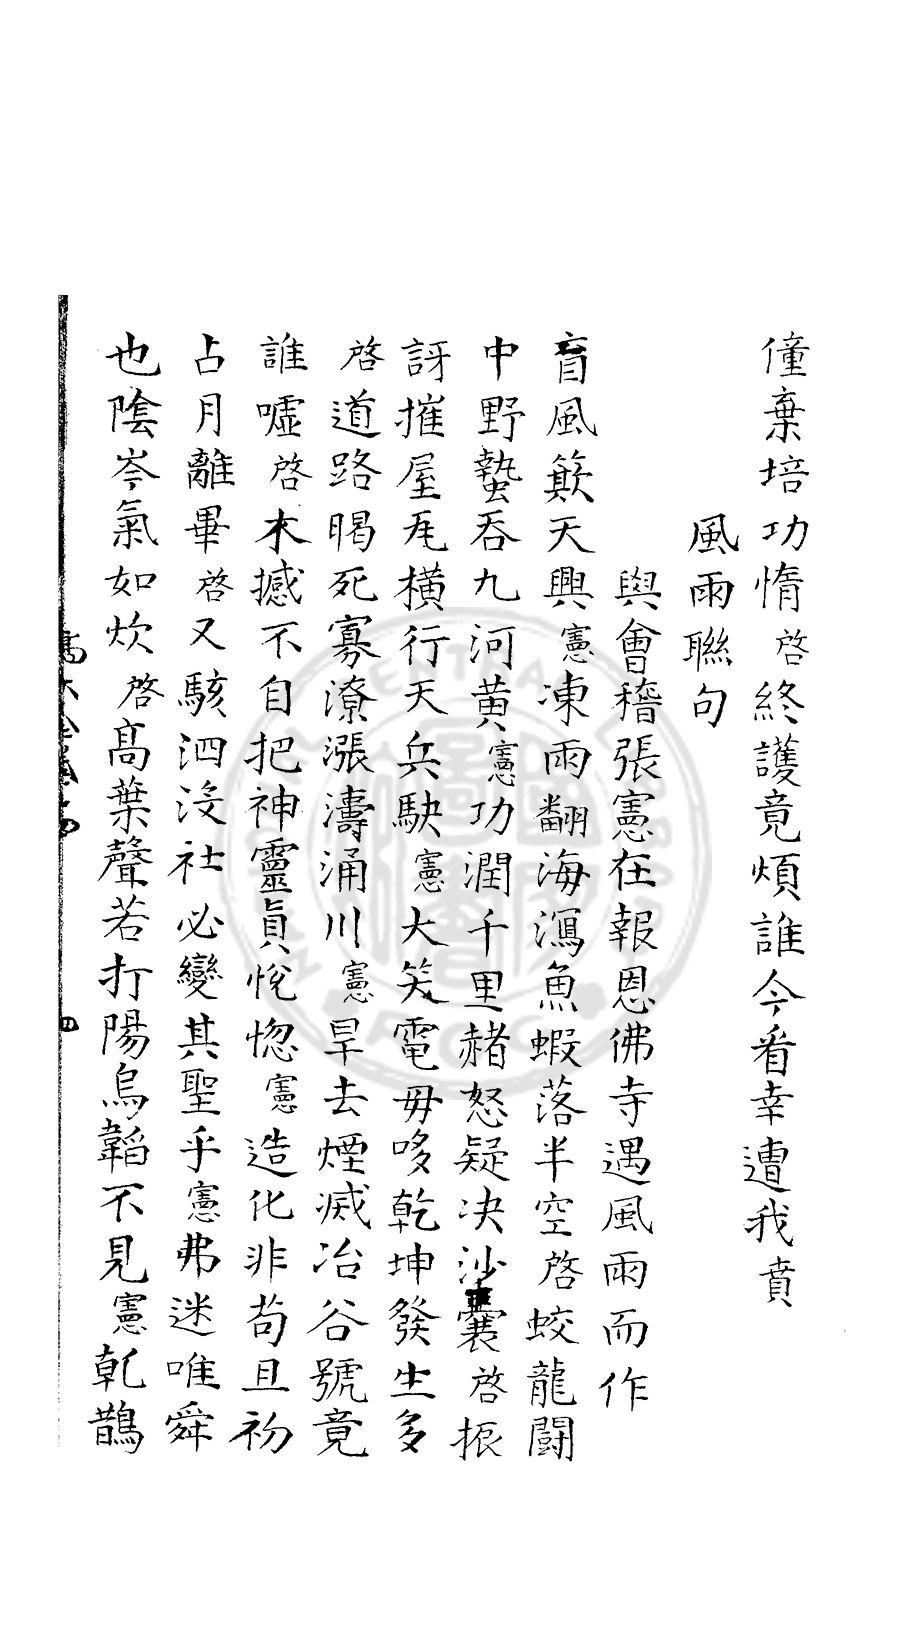 僮棄培功惰啓終護竟煩誰今看幸遭我賁
風雨聯句
與會稽張憲在報恩佛寺遇風雨而作
盲風簸天興憲凍雨翻海瀉魚蝦落半空啓蛟龍鬪
中野蟄吞九河黄憲功潤千里赭怒疑决沙囊啓振
訝摧屋瓦橫行天兵駃憲大笑電毋哆乾坤發生多
啓道路暍死寡潦漲濤涌川憲旱去煙滅冶谷號竟
誰噓啓木撼不自把神靈眞恍惚憲造化非苟且初
占月離畢啓又駭泗沒社必變其聖乎憲弗迷唯舜
也陰岑氣如炊啓髙葉聲若打陽烏韜不見憲乹鵲